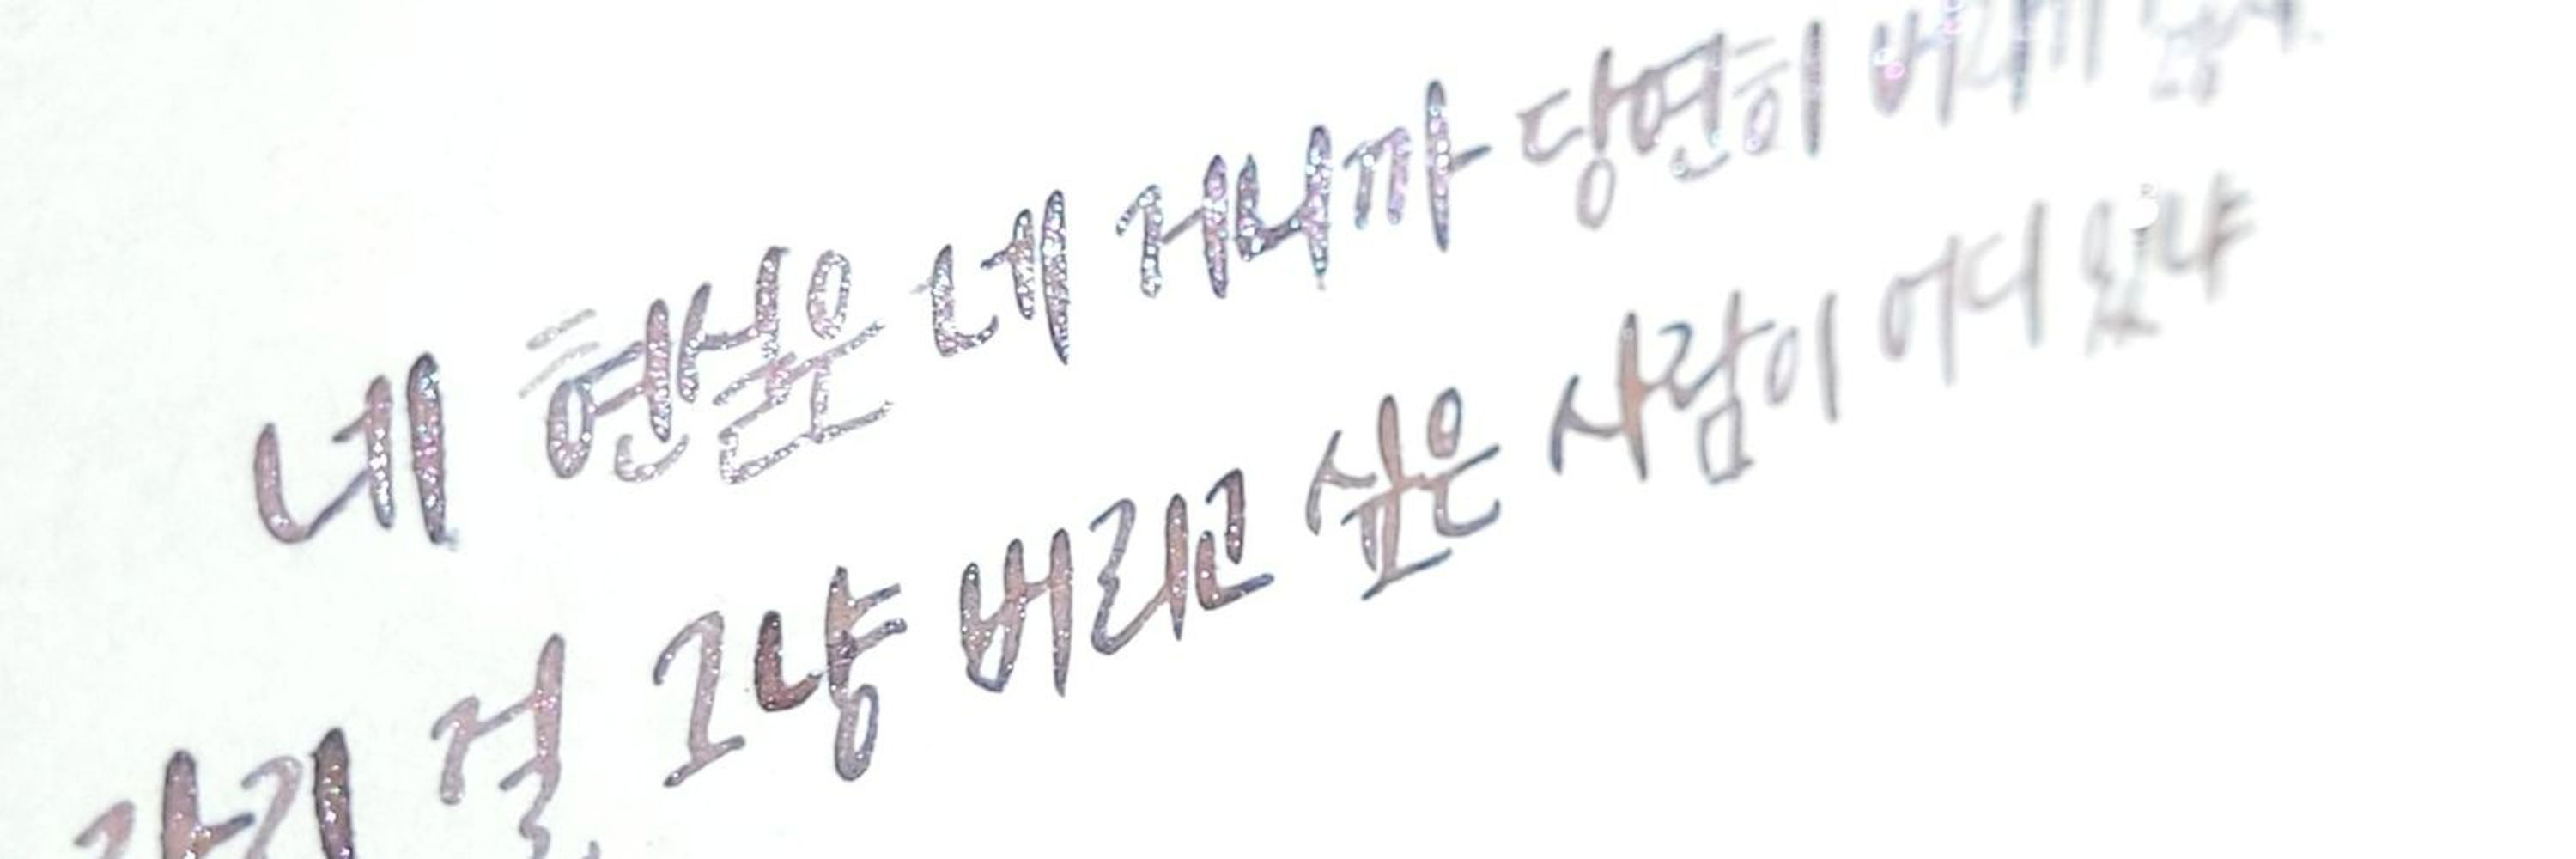 네 현실은 네 거니까 당연히 버리기
자기 걸 그냥 버리고 싶은 사람이 어디 있냐